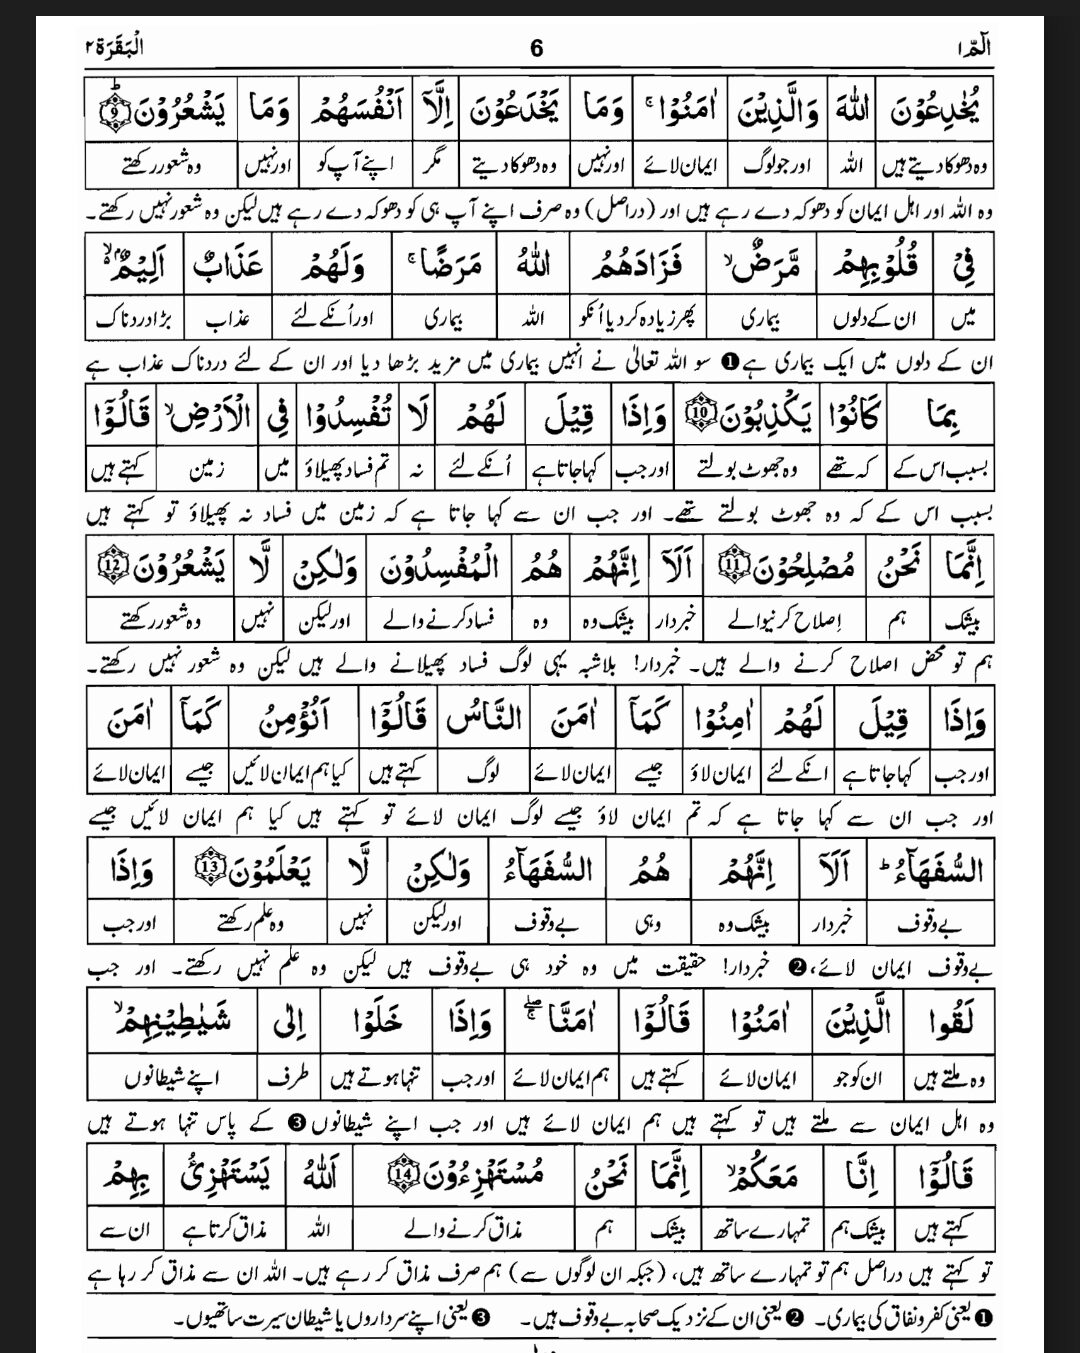 الٓمّٓ ١ 6 الْبَقَرَة ٢
يُخٰدِعُوْنَ اللّٰهَ وَالَّذِيْنَ اٰمَنُوْا ۚ وَمَا يَخْدَعُوْنَ اِلَّآ اَنْفُسَهُمْ وَمَا يَشْعُرُوْنَ ؕ 9
وہ دھوکا دیتے ہیں اللہ اور جو لوگ ایمان لائے اور نہیں وہ دھوکا دیتے مگر اپنے آپ کو اور نہیں وہ شعور رکھتے
وہ اللہ اور اہل ایمان کو دھوکہ دے رہے ہیں اور (دراصل) وہ صرف اپنے آپ ہی کو دھوکہ دے رہے ہیں لیکن وہ شعور نہیں رکھتے۔
فِيْ قُلُوْبِهِمْ مَّرَضٌ ۙ فَزَادَهُمُ اللّٰهُ مَرَضًا ۚ وَلَهُمْ عَذَابٌ اَلِيْمٌۢ ۙ
میں ان کے دلوں بیماری پھر زیادہ کر دیا اُنکو اللہ بیماری اور اُنکے لئے عذاب بڑا دردناک
ان کے دلوں میں ایک بیماری ہے ❶ سو اللہ تعالیٰ نے انہیں بیماری میں مزید بڑھا دیا اور ان کے لئے دردناک عذاب ہے
بِمَا كَانُوْا يَكْذِبُوْنَ 10 وَاِذَا قِيْلَ لَهُمْ لَا تُفْسِدُوْا فِي الْاَرْضِ ۙ قَالُوْٓا
بسبب اس کے کہ تھے وہ جھوٹ بولتے اور جب کہا جاتا ہے اُنکے لئے نہ تم فساد پھیلاؤ میں زمین کہتے ہیں
بسبب اس کے کہ وہ جھوٹ بولتے تھے۔ اور جب ان سے کہا جاتا ہے کہ زمین میں فساد نہ پھیلاؤ تو کہتے ہیں
اِنَّمَا نَحْنُ مُصْلِحُوْنَ 11 اَلَآ اِنَّهُمْ هُمُ الْمُفْسِدُوْنَ وَلٰكِنْ لَّا يَشْعُرُوْنَ 12
بیشک ہم اِصلاح کرنیوالے خبردار بیشک وہ وہ فساد کرنے والے اور لیکن نہیں وہ شعور رکھتے
ہم تو محض اصلاح کرنے والے ہیں۔ خبردار! بلاشبہ یہی لوگ فساد پھیلانے والے ہیں لیکن وہ شعور نہیں رکھتے۔
وَاِذَا قِيْلَ لَهُمْ اٰمِنُوْا كَمَآ اٰمَنَ النَّاسُ قَالُوْٓا اَنُؤْمِنُ كَمَآ اٰمَنَ
اور جب کہا جاتا ہے انکے لئے ایمان لاؤ جیسے ایمان لائے لوگ کہتے ہیں کیا ہم ایمان لائیں جیسے ایمان لائے
اور جب ان سے کہا جاتا ہے کہ تم ایمان لاؤ جیسے لوگ ایمان لائے تو کہتے ہیں کیا ہم ایمان لائیں جیسے
السُّفَهَآءُ ؕ اَلَآ اِنَّهُمْ هُمُ السُّفَهَآءُ وَلٰكِنْ لَّا يَعْلَمُوْنَ 13 وَاِذَا
بے وقوف خبردار بیشک وہ وہی بے وقوف اور لیکن نہیں وہ علم رکھتے اور جب
بے وقوف ایمان لائے، ❷ خبردار! حقیقت میں وہ خود ہی بے وقوف ہیں لیکن وہ علم نہیں رکھتے۔ اور جب
لَقُوا الَّذِيْنَ اٰمَنُوْا قَالُوْٓا اٰمَنَّا ۖۚ وَاِذَا خَلَوْا اِلٰى شَيٰطِيْنِهِمْ ۙ
وہ ملتے ہیں ان کو جو ایمان لائے کہتے ہیں ہم ایمان لائے اور جب تنہا ہوتے ہیں طرف اپنے شیطانوں
وہ اہل ایمان سے ملتے ہیں تو کہتے ہیں ہم ایمان لائے ہیں اور جب اپنے شیطانوں ❸ کے پاس تنہا ہوتے ہیں
قَالُوْٓا اِنَّا مَعَكُمْ ۙ اِنَّمَا نَحْنُ مُسْتَهْزِءُوْنَ 14 اَللّٰهُ يَسْتَهْزِئُ بِهِمْ
کہتے ہیں بیشک ہم تمہارے ساتھ بیشک ہم مذاق کرنے والے اللہ مذاق کرتا ہے ان سے
تو کہتے ہیں دراصل ہم تو تمہارے ساتھ ہیں، (جبکہ ان لوگوں سے) ہم صرف مذاق کر رہے ہیں۔ اللہ ان سے مذاق کر رہا ہے
❶ یعنی کفر و نفاق کی بیماری۔ ❷ یعنی ان کے نزدیک صحابہ بے وقوف ہیں۔ ❸ یعنی اپنے سرداروں یا شیطان سیرت ساتھیوں۔